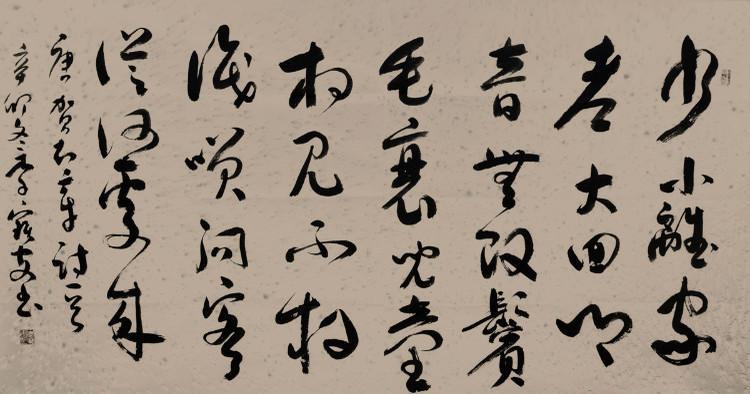 少小離家
老大回鄉
音無改鬢
毛衰兒童
相見不相
識咲問客
從何處來
唐賀知章詩一首
辛卯冬書